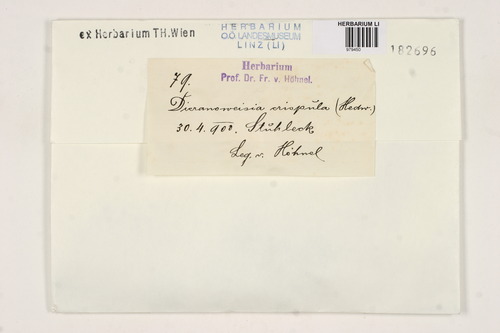 ex Herbarium TH.Wien
HERBARIUM
O.Ö. LANDESMUSEUM
LINZ (LI)
HERBARIUM LI
182696
Herbarium
Prof. Dr. Fr. v. Höhnel.
79.
Dicranoweisia crispula (Hedw.)
30. 4. 900. Stuhleck
Leg. v. Höhnel